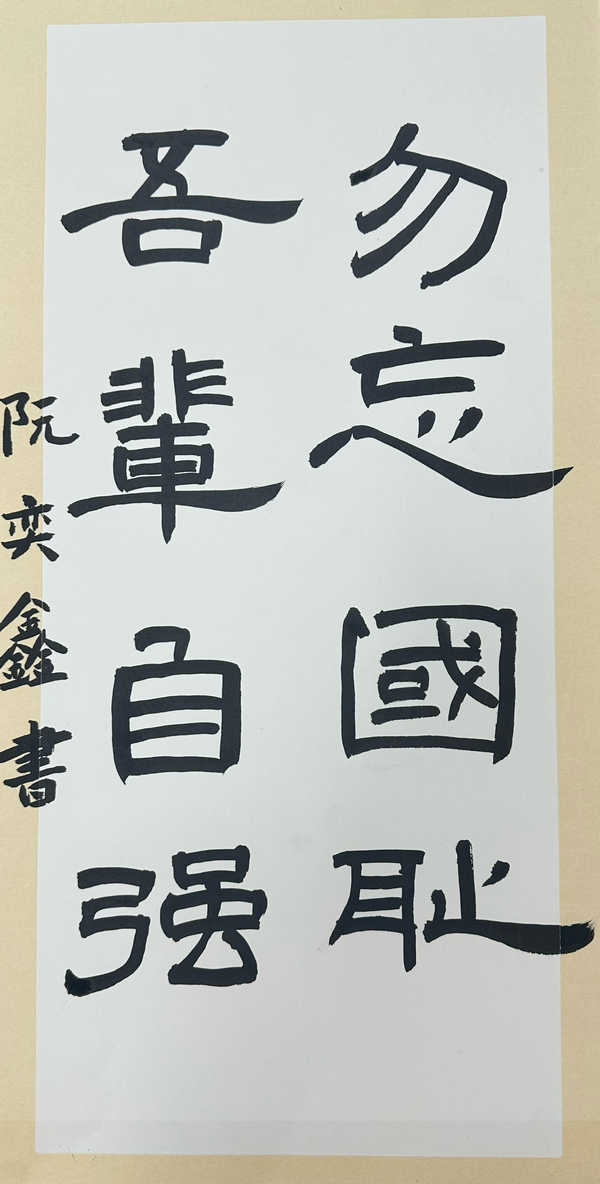 勿忘國耻
吾輩自强
阮奕鑫書